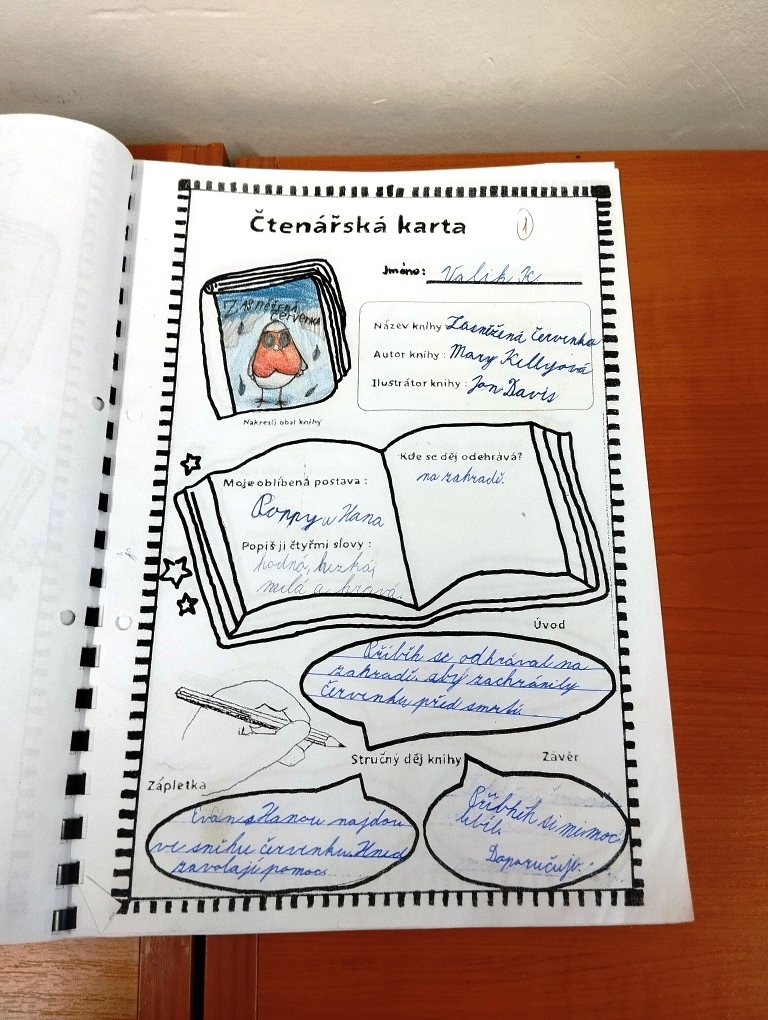 Čtenářská karta
1
Jméno: Valik K.
ZASNĚŽENÁ
ČERVENKA
Název knihy: Zasněžená červenka
Autor knihy: Mary Kellyová
Ilustrátor knihy: Jon Davis
Nakresli obal knihy
Moje oblíbená postava:
Poppy a Hana
Popiš ji čtyřmi slovy:
hodná, hezká,
milá a hravá.
Kde se děj odehrává?
na zahradě.
Úvod
Příběh se odhrával na
zahradě. aby zachránily
červenku před smrtí.
Stručný děj knihy
Zápletka
Evan s Hanou najdou
ve sněhu červenku. Hned
zavolají pomoc.
Závěr
Příběh si mi moc
líbil.
Doporučuji.